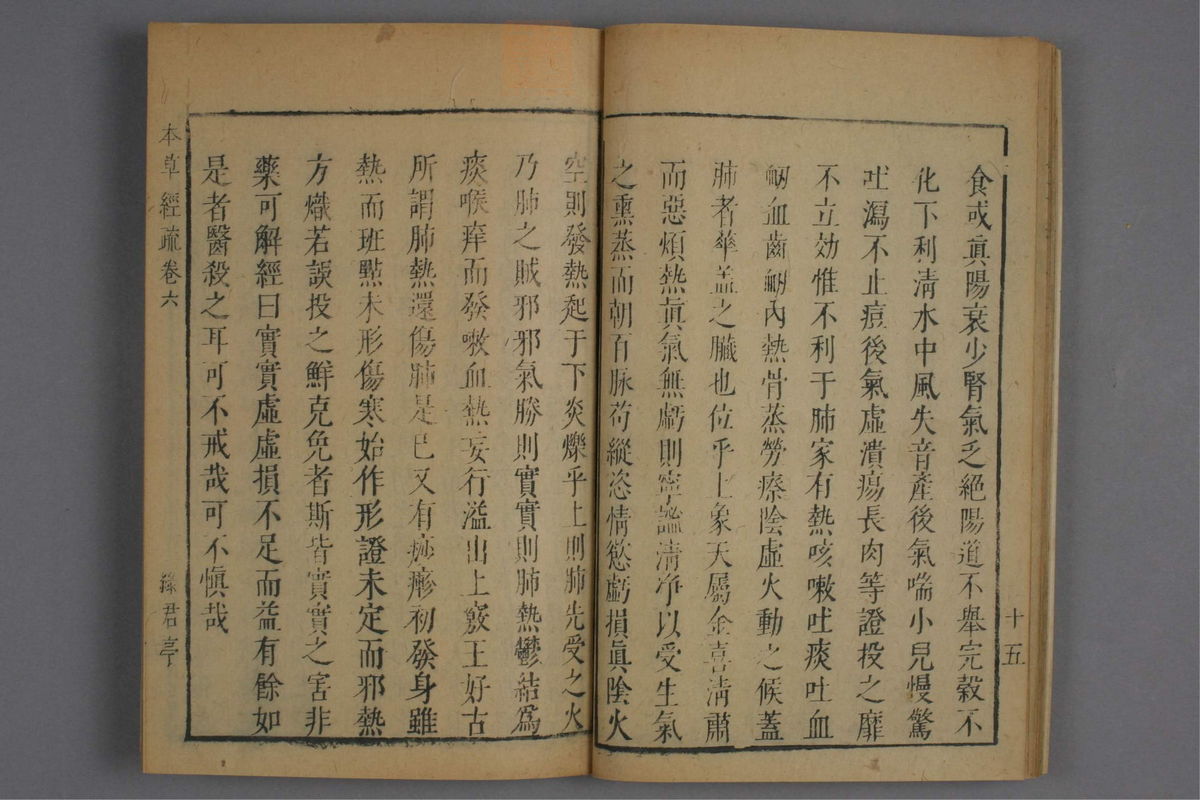 食或眞陽衰少腎氣乏絕陽道不舉完穀不
化下利淸水中風失音產後氣喘小兒慢驚
吐瀉不止痘後氣虛潰瘍長肉等證投之靡
不立効惟不利于肺家有熱咳嗽吐痰吐血
衂血齒衂內熱骨蒸勞瘵陰虛火動之候蓋
肺者華盖之臟也位乎上象天屬金喜淸肅
而惡煩熱眞氣無虧則寧謐淸净以受生氣
之熏蒸而朝百脉苟縱恣情慾虧損眞陰火
十五
空則發熱起于下炎爍乎上則肺先受之火
乃肺之賊邪邪氣勝則實實則肺熱鬱結爲
痰喉痒而發嗽血熱妄行溢出上竅王好古
所謂肺熱還傷肺是已又有痧瘮初發身雖
熱而班點未形傷寒始作形證未定而邪熱
方熾若誤投之鮮克免者斯皆實實之害非
藥可解經曰實實虛虛損不足而益有餘如
是者醫殺之耳可不戒哉可不愼哉
本草經疏 卷六
綠君亭